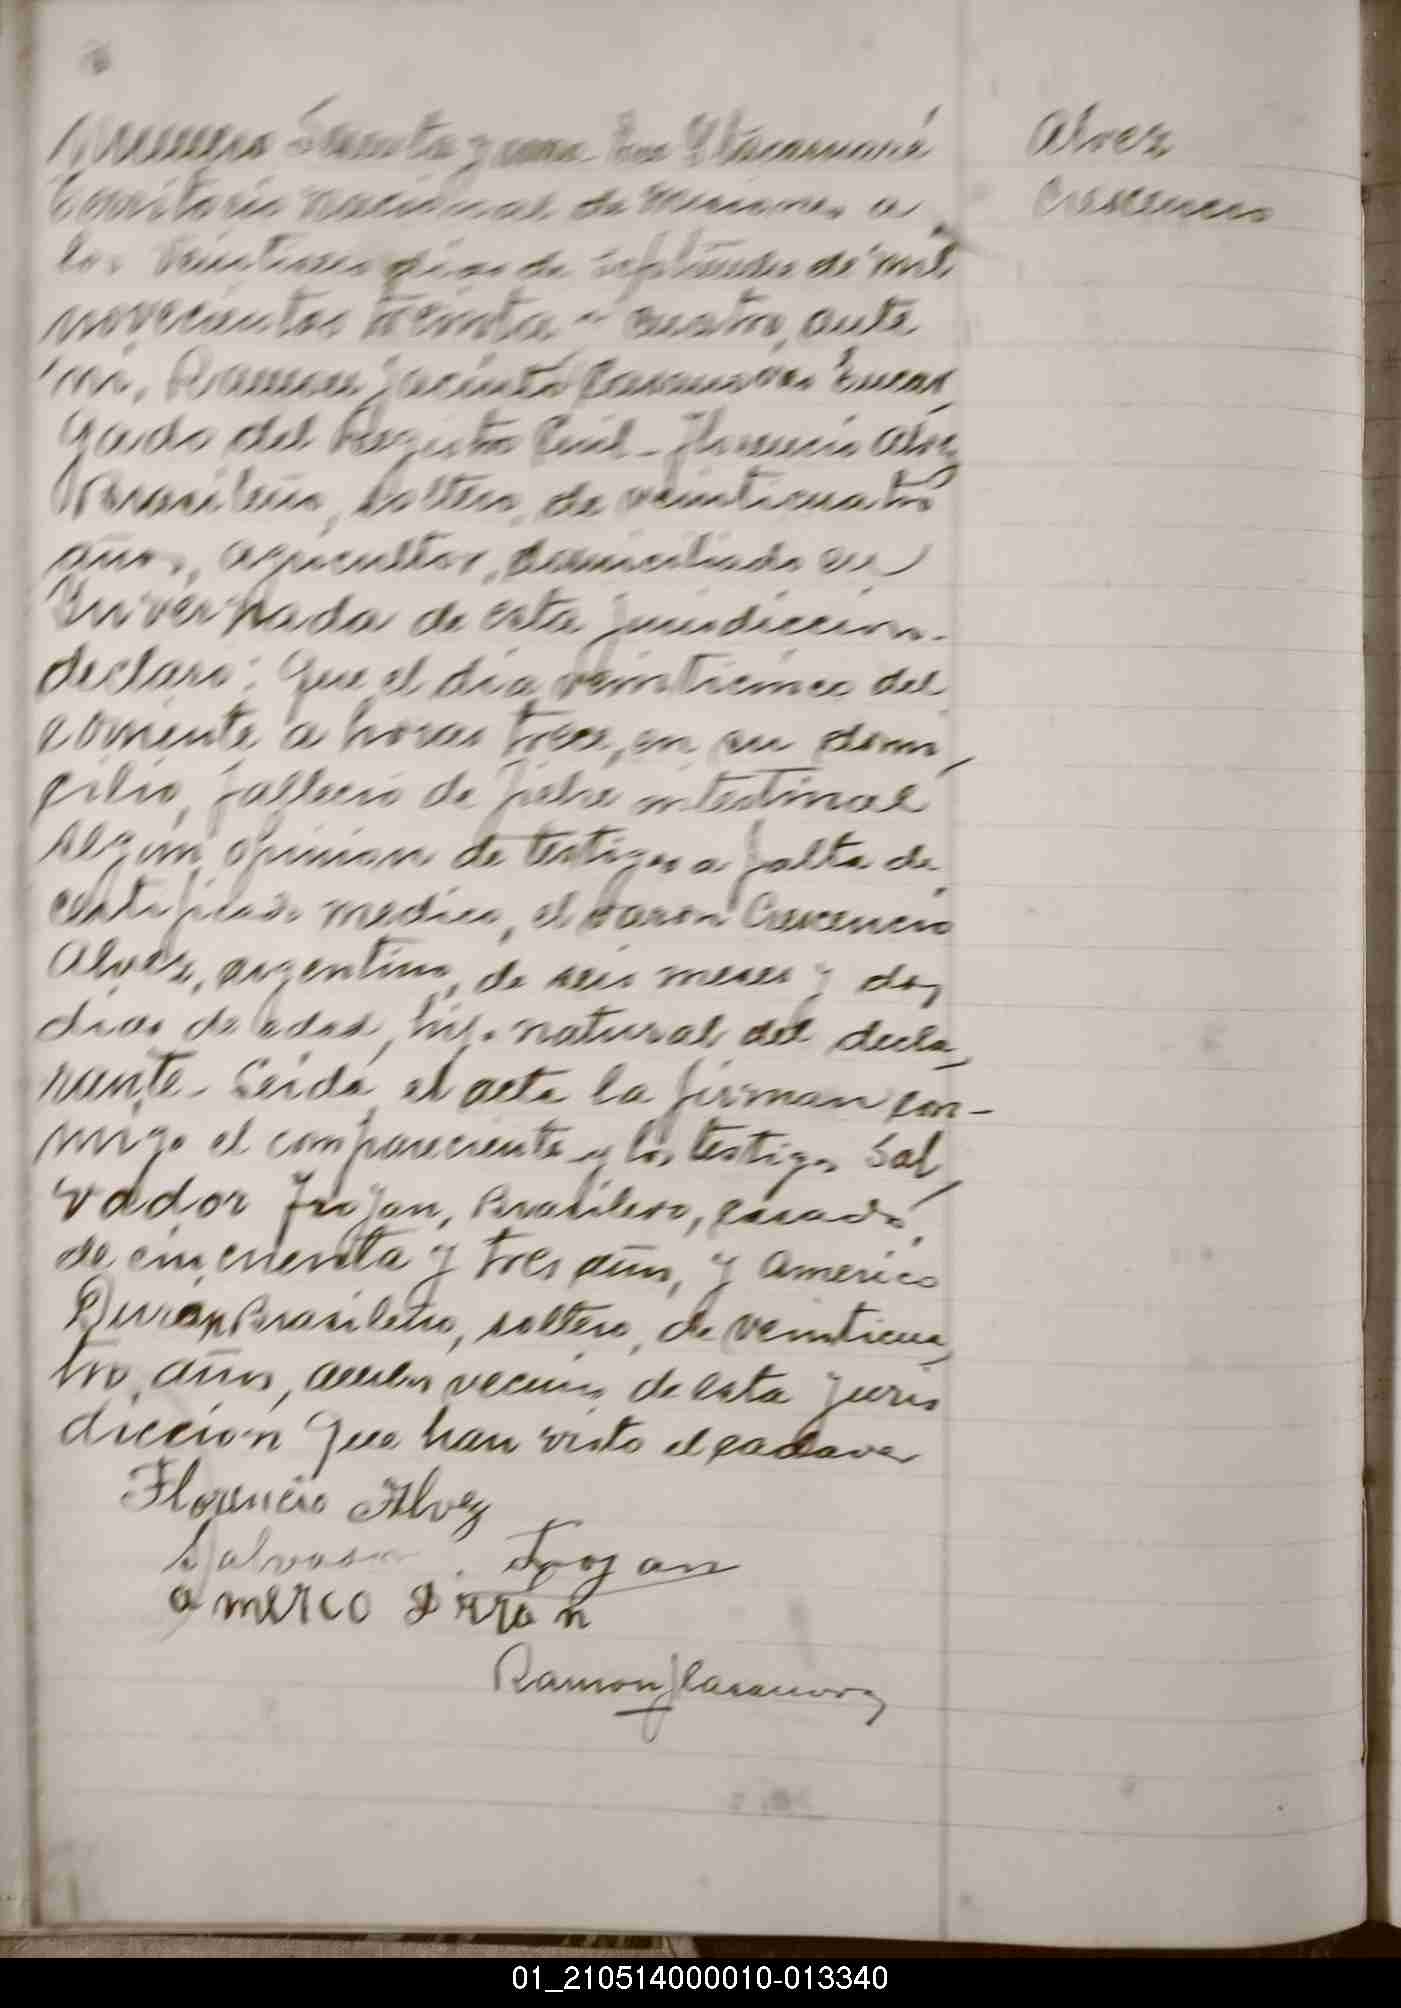 Alvez
Crescencio
Numero Sesenta y uno En Itacaruaré
Territorio Nacional de Misiones a
los dias de septiembre de mil
novecientos treinta y cuatro, ante
mi, Ramon Jacinto Casanova Encar
gado del Registro Civil - Florencio Alvez
Brasileño, soltero, de veinticuatro
años, agricultor, domiciliado en
Invernada de esta jurisdiccion.
declaro: Que el dia veinticinco del
corriente a horas trece, en su domi
cilio, fallecio de fiebre intestinal
según opinion de testigos a falta de
certificado medico, el varon Crescencio
Alvez, argentino, de seis meses y dos
dias de edad, hijo natural del decla
rante - Leida el acta la firman con-
migo el compareciente y los testigos Sal
vador Trojan, Brasilero, casado,
de cincuenta y tres años, y Americo
Duran Brasilero, soltero, de veinticua
tro años, ambos vecinos de esta juris
diccion que han visto el cadaver
Florencio Alvez
Salvador Trojan
Americo Durran
Ramon J Casanova
01_210514000010-013340